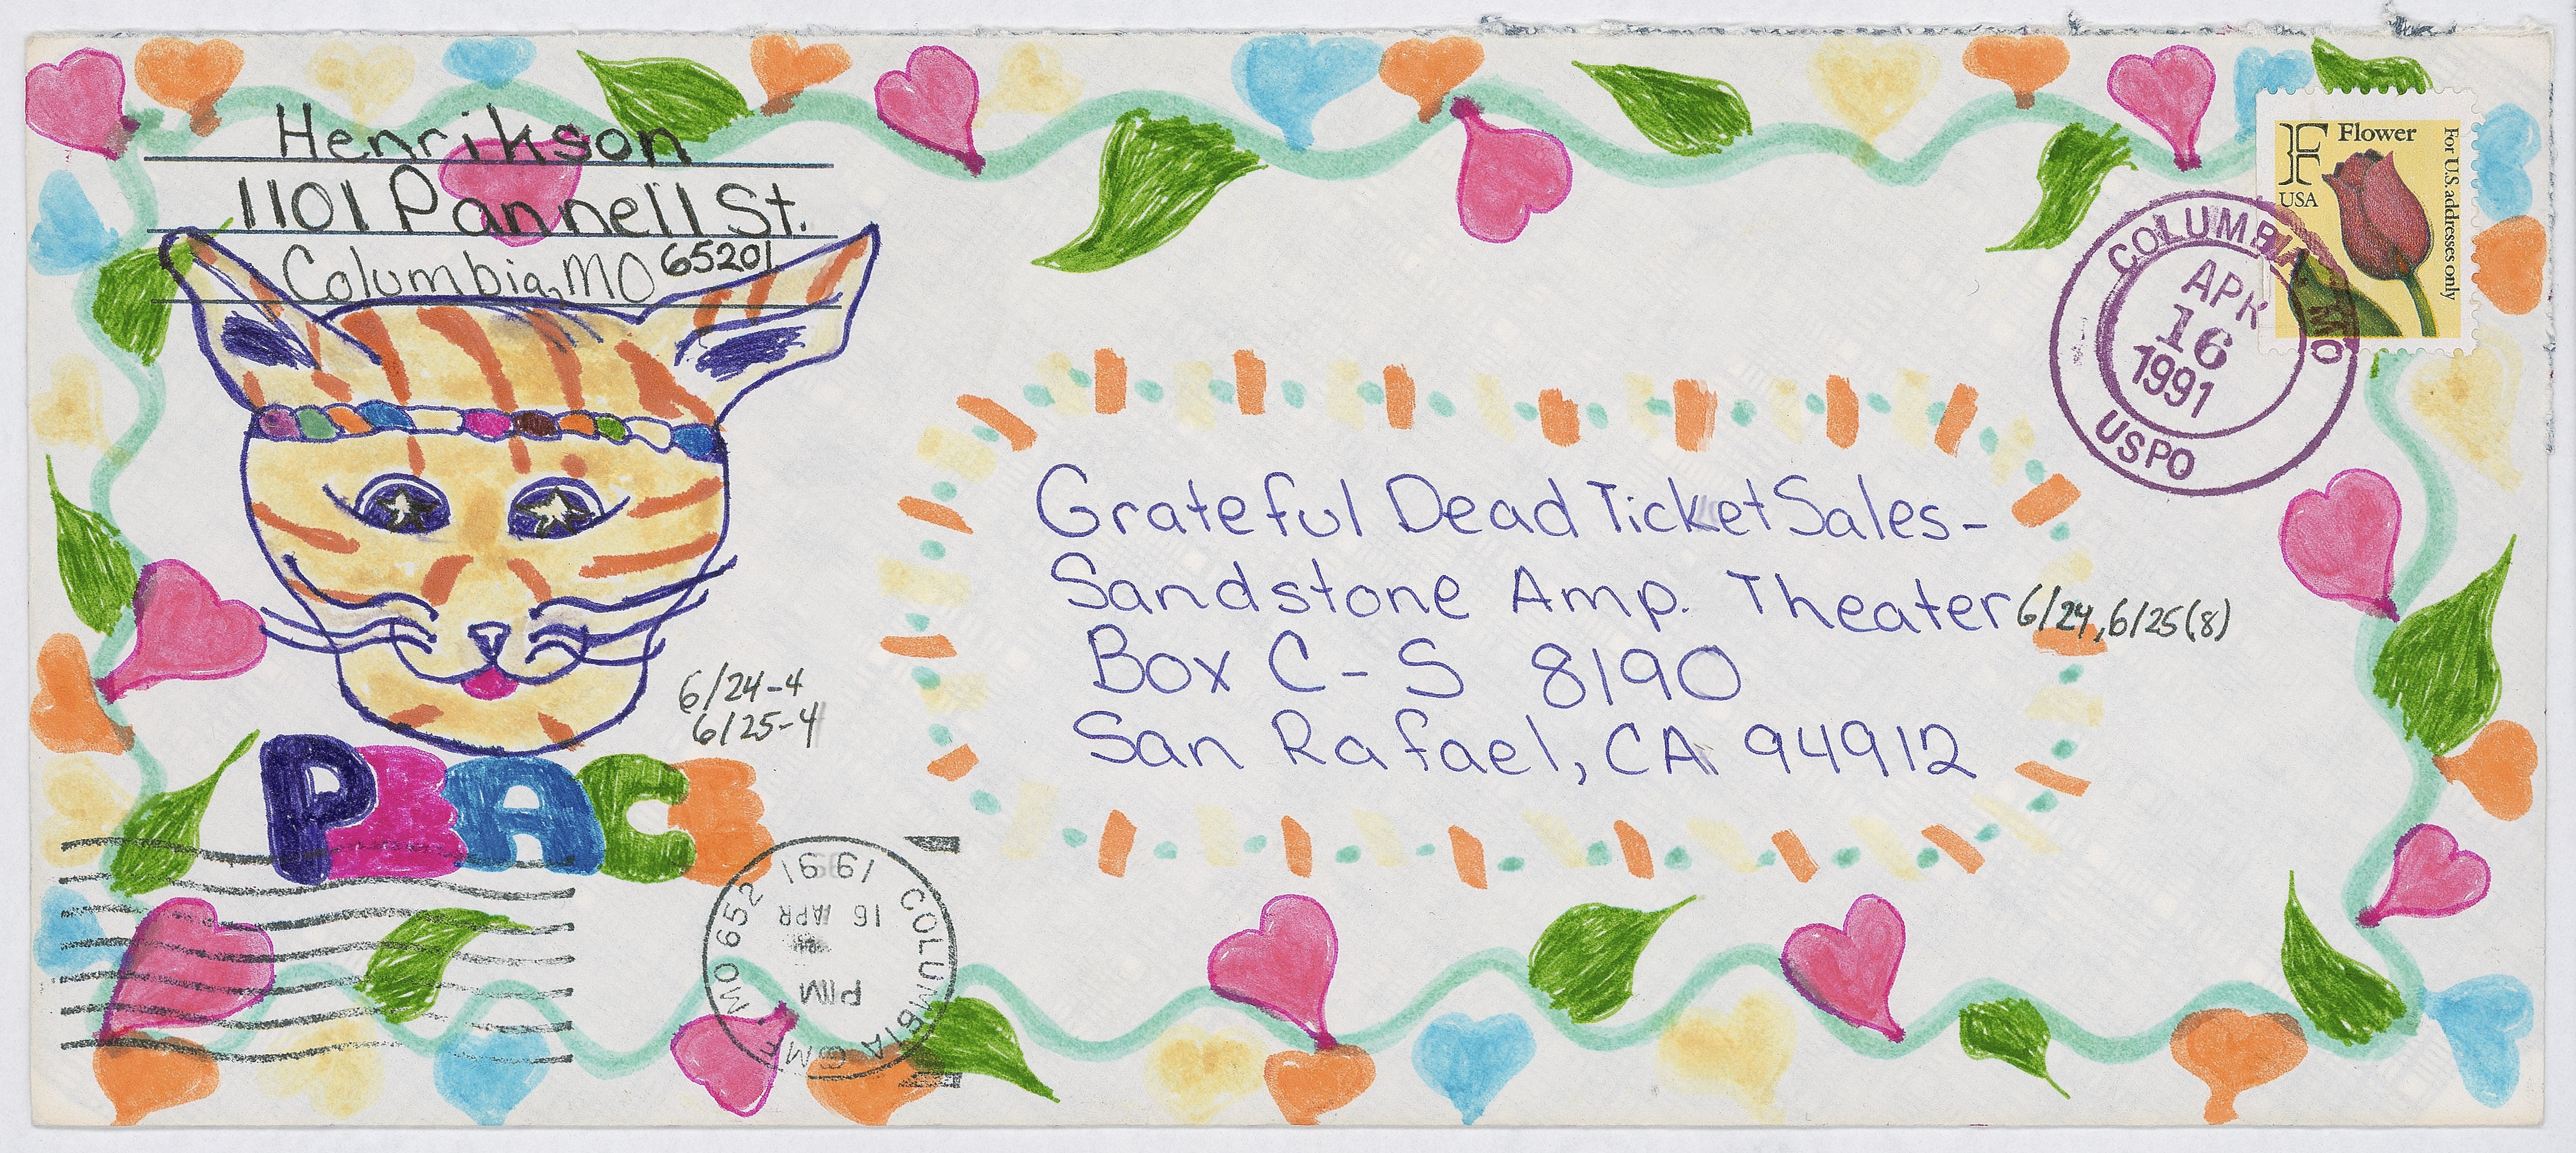 Henrikson
1101 Pannell St.
Columbia, MO 65201
F Flower
USA
For U.S. addresses only
COLUMBIA, MO
APR
16
1991
USPO
Grateful Dead Ticket Sales-
Sandstone Amp. Theater 6/24, 6/25 (8)
Box C-S 8190
San Rafael, CA 94912
6/24-4
6/25-4
PEACE
COLUMBIA GMF MO 652
PM
16 APR
1991